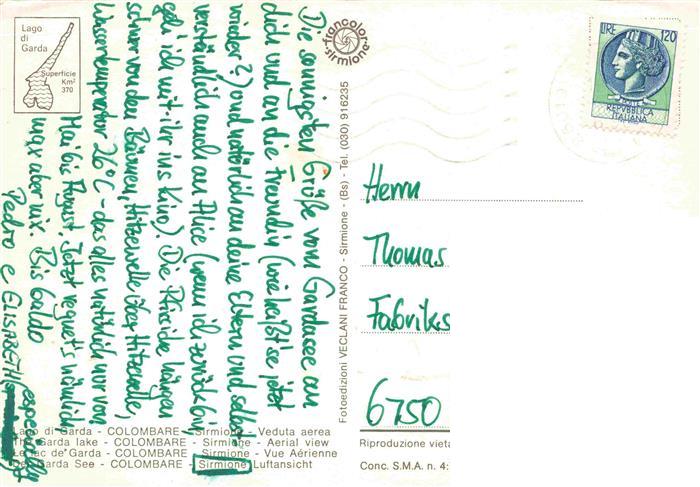 Lago
di
Garda
Superficie
Km²
370
francolor
sirmione
LIRE 120
REPVBBLICA
ITALIANA
Die sonnigsten Grüße vom Gardasee an
dich und an die Freundin (wie heißt se jetzt
wieder?) und natürlich an deine Eltern und selbst-
verständlich auch an Alice (wenn ich zurück bin,
geh ich mit ihr ins Kino). Die Pfirsiche hängen
schwer von den Bäumen, Hitzewelle über Hitzewelle,
Wassertemperatur 26°C - das alles natürlich nur von
Mai bis August. Jetzt regnet's nämlich
wax aber nix. Bis baldo
Pedro e ELISABETH
especially
Fotoedizioni VECLANI FRANCO - Sirmione - (Bs) - Tel. (030) 916235
Herrn
Thomas
Fabriks
6750
Lago di Garda - COLOMBARE - Sirmione - Veduta aerea
The Garda lake - COLOMBARE - Sirmione - Aerial view
Le lac de Garda - COLOMBARE - Sirmione - Vue Aérienne
Der Garda See - COLOMBARE - Sirmione Luftansicht
Riproduzione vieta
Conc. S.M.A. n. 4: